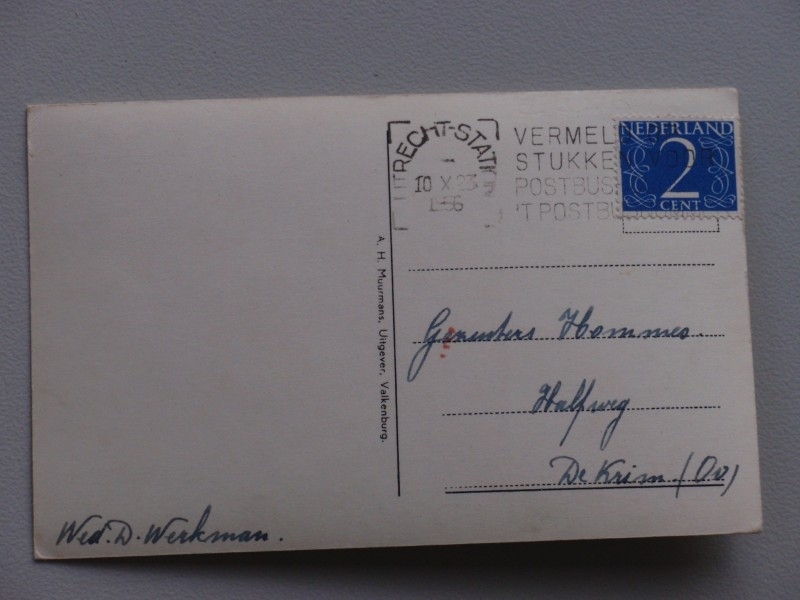 UTRECHT-STATION
10 X 23
1956
VERMEL
STUKKEN VOOR
POSTBUS
'T POSTBU
NEDERLAND
2
CENT
A. H. Muurmans, Uitgever, Valkenburg.
Hommes.
Halfweg
De Krim. (Ov)
Wed. D. Werkman.